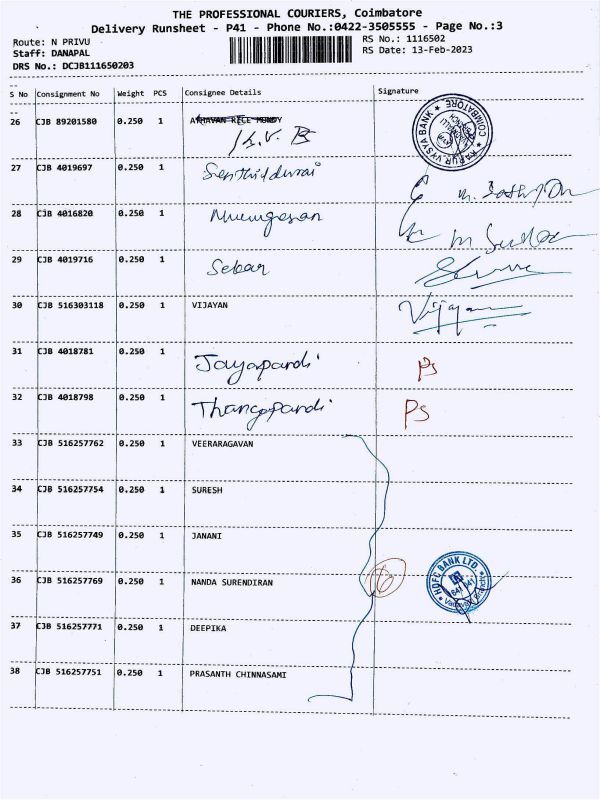 THE PROFESSIONAL COURIERS, Coimbatore
Delivery Runsheet - P41 - Phone No.:0422-3505555 - Page No.:3
Route: N PRIVU RS No.: 1116502
Staff: DANAPAL RS Date: 13-Feb-2023
DRS No.: DCJB111650203
S No Consignment No Weight PCS Consignee Details Signature
26 CJB 89201580 0.250 1
K.V.B
KARUR VYSYA BANK COIMBATORE
27 CJB 4019697 0.250 1 Senthildurai
28 CJB 4016820 0.250 1 Murugesan
29 CJB 4019716 0.250 1 Sekar
30 CJB 516303118 0.250 1 VIJAYAN Vijayan
31 CJB 4018781 0.250 1 Jayapandi Ps
32 CJB 4018798 0.250 1 Thangapandi Ps
33 CJB 516257762 0.250 1 VEERARAGAVAN
34 CJB 516257754 0.250 1 SURESH
35 CJB 516257749 0.250 1 JANANI
36 CJB 516257769 0.250 1 NANDA SURENDIRAN
HDFC BANK LTD.
37 CJB 516257771 0.250 1 DEEPIKA
38 CJB 516257751 0.250 1 PRASANTH CHINNASAMI